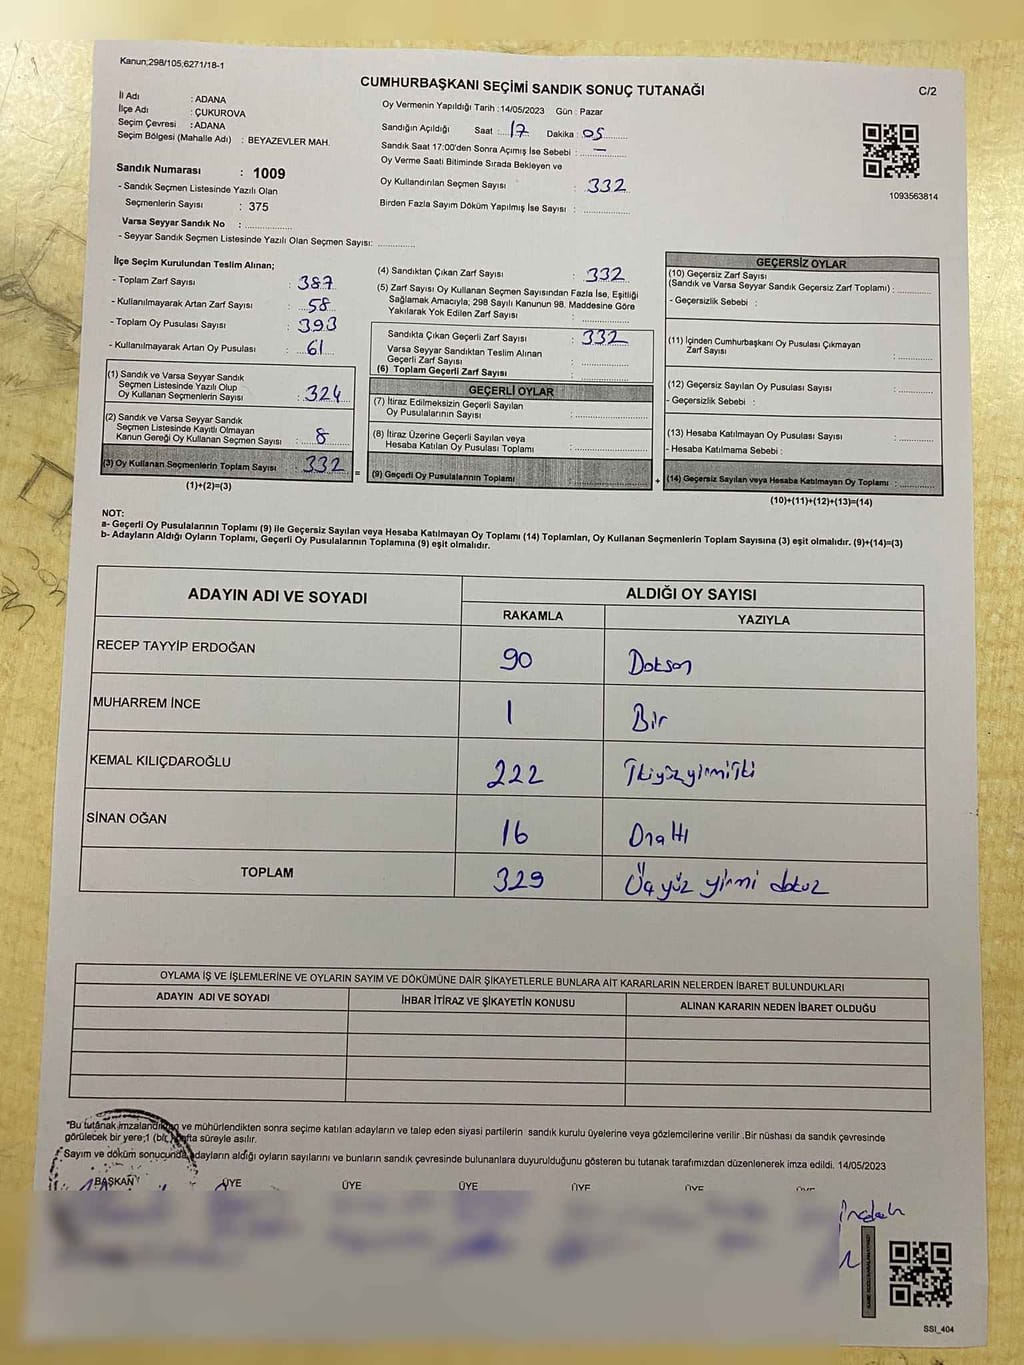 Kanun;298/105;6271/18-1
CUMHURBAŞKANI SEÇİMİ SANDIK SONUÇ TUTANAĞI
C/2
İl Adı : ADANA
İlçe Adı : ÇUKUROVA
Seçim Çevresi : ADANA
Seçim Bölgesi (Mahalle Adı) : BEYAZEVLER MAH.
Sandık Numarası : 1009
- Sandık Seçmen Listesinde Yazılı Olan
Seçmenlerin Sayısı : 375
Varsa Seyyar Sandık No : ..................
- Seyyar Sandık Seçmen Listesinde Yazılı Olan Seçmen Sayısı: ..............
Oy Vermenin Yapıldığı Tarih : 14/05/2023 Gün : Pazar
Sandığın Açıldığı Saat : 17 Dakika : 05
Sandık Saat 17:00'den Sonra Açımış İse Sebebi : —
Oy Verme Saati Bitiminde Sırada Bekleyen ve
Oy Kullandırılan Seçmen Sayısı : 332
Birden Fazla Sayım Döküm Yapılmış İse Sayısı : ..................
1093563814
İlçe Seçim Kurulundan Teslim Alınan;
- Toplam Zarf Sayısı : 387
- Kullanılmayarak Artan Zarf Sayısı : 58
- Toplam Oy Pusulası Sayısı : 393
- Kullanılmayarak Artan Oy Pusulası : 61
(1) Sandık ve Varsa Seyyar Sandık
Seçmen Listesinde Yazılı Olup
Oy Kullanan Seçmenlerin Sayısı : 324
(2) Sandık ve Varsa Seyyar Sandık
Seçmen Listesinde Kayıtlı Olmayan
Kanun Gereği Oy Kullanan Seçmen Sayısı : 8
(3) Oy Kullanan Seçmenlerin Toplam Sayısı : 332
(1)+(2)=(3)
=
(4) Sandıktan Çıkan Zarf Sayısı : 332
(5) Zarf Sayısı Oy Kullanan Seçmen Sayısından Fazla İse, Eşitliği
Sağlamak Amacıyla; 298 Sayılı Kanunun 98. Maddesine Göre
Yakılarak Yok Edilen Zarf Sayısı : ..................
Sandıkta Çıkan Geçerli Zarf Sayısı : 332
Varsa Seyyar Sandıktan Teslim Alınan
Geçerli Zarf Sayısı : ..................
(6) Toplam Geçerli Zarf Sayısı : ..................
GEÇERLİ OYLAR
(7) İtiraz Edilmeksizin Geçerli Sayılan
Oy Pusulalarının Sayısı : ..................
(8) İtiraz Üzerine Geçerli Sayılan veya
Hesaba Katılan Oy Pusulası Toplamı : ..................
(9) Geçerli Oy Pusulalarının Toplamı : ..................
+
GEÇERSİZ OYLAR
(10) Geçersiz Zarf Sayısı
(Sandık ve Varsa Seyyar Sandık Geçersiz Zarf Toplamı) : ..............
- Geçersizlik Sebebi :
(11) İçinden Cumhurbaşkanı Oy Pusulası Çıkmayan
Zarf Sayısı : ..............
(12) Geçersiz Sayılan Oy Pusulası Sayısı : ..............
- Geçersizlik Sebebi :
(13) Hesaba Katılmayan Oy Pusulası Sayısı : ..............
- Hesaba Katılmama Sebebi :
(14) Geçersiz Sayılan veya Hesaba Katılmayan Oy Toplamı : ..............
(10)+(11)+(12)+(13)=(14)
NOT:
a- Geçerli Oy Pusulalarının Toplamı (9) ile Geçersiz Sayılan veya Hesaba Katılmayan Oy Toplamı (14) Toplamları, Oy Kullanan Seçmenlerin Toplam Sayısına (3) eşit olmalıdır. (9)+(14)=(3)
b- Adayların Aldığı Oyların Toplamı, Geçerli Oy Pusulalarının Toplamına (9) eşit olmalıdır.
ADAYIN ADI VE SOYADI
ALDIĞI OY SAYISI
RAKAMLA YAZIYLA
RECEP TAYYİP ERDOĞAN 90 Doksan
MUHARREM İNCE 1 Bir
KEMAL KILIÇDAROĞLU 222 İkiyüzyirmiİki
SİNAN OĞAN 16 Onaltı
TOPLAM 329 Üçyüz yirmi dokuz
OYLAMA İŞ VE İŞLEMLERİNE VE OYLARIN SAYIM VE DÖKÜMÜNE DAİR ŞİKAYETLERLE BUNLARA AİT KARARLARIN NELERDEN İBARET BULUNDUKLARI
ADAYIN ADI VE SOYADI İHBAR İTİRAZ VE ŞİKAYETİN KONUSU ALINAN KARARIN NEDEN İBARET OLDUĞU
"Bu tutanak imzalandıktan ve mühürlendikten sonra seçime katılan adayların ve talep eden siyasi partilerin sandık kurulu üyelerine veya gözlemcilerine verilir .Bir nüshası da sandık çevresinde
görülecek bir yere;1 (bir) hafta süreyle asılır.
Sayım ve döküm sonucunda adayların aldığı oyların sayılarını ve bunların sandık çevresinde bulunanlara duyurulduğunu gösteren bu tutanak tarafımızdan düzenlenerek imza edildi. 14/05/2023
BAŞKAN ÜYE ÜYE ÜYE ÜYE ÜYE ÜYE
SSI_404